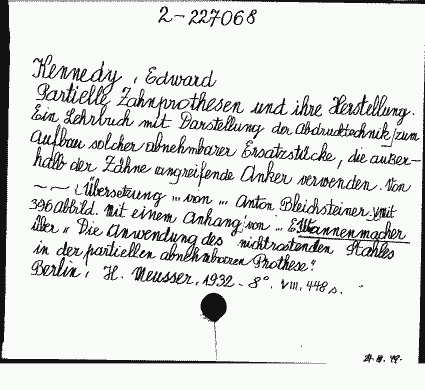 2-227068
Kennedy, Edward
Partielle Zahnprothesen und ihre Herstellung.
Ein Lehrbuch mit Darstellung der Abdrucktechnik/zum
Aufbau solcher abnehmbarer Ersatzstücke, die außer-
halb der Zähne angreifende Anker verwenden. Von
— — (Übersetzung ... von ... Anton Bleichsteiner) mit
396 Abbild. mit einem Anhang von ... E. Wannenmacher
über "Die Anwendung des nichtrostenden Stahles
in der partiellen abnehmbaren Prothese".
Berlin, H. Meusser, 1932. - 8°. VIII, 448 s.